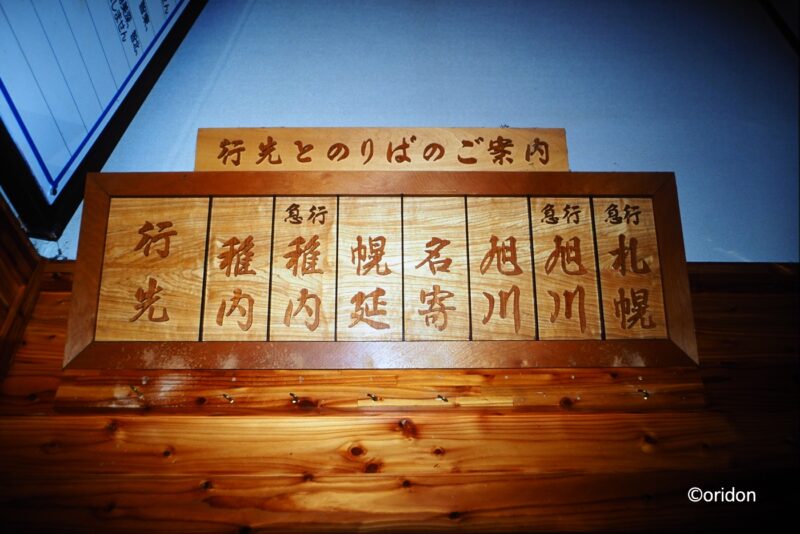 行先とのりばのご案内
行先
稚内
急行
稚内
幌延
名寄
旭川
急行
旭川
急行
札幌
©oridon